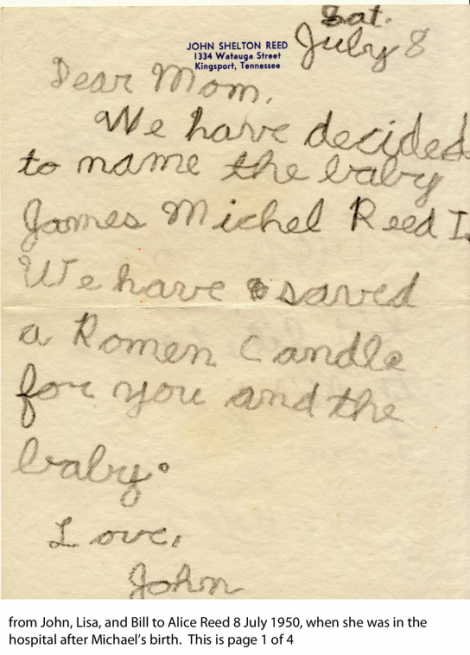 Sat.
July 8
JOHN SHELTON REED
1334 Watauga Street
Kingsport, Tennessee
Dear Mom,
We have decided
to name the baby
James Michel Reed I.
We have saved
a Romen Candle
for you and the
baby.
Love,
John
from John, Lisa, and Bill to Alice Reed 8 July 1950, when she was in the
hospital after Michael's birth. This is page 1 of 4